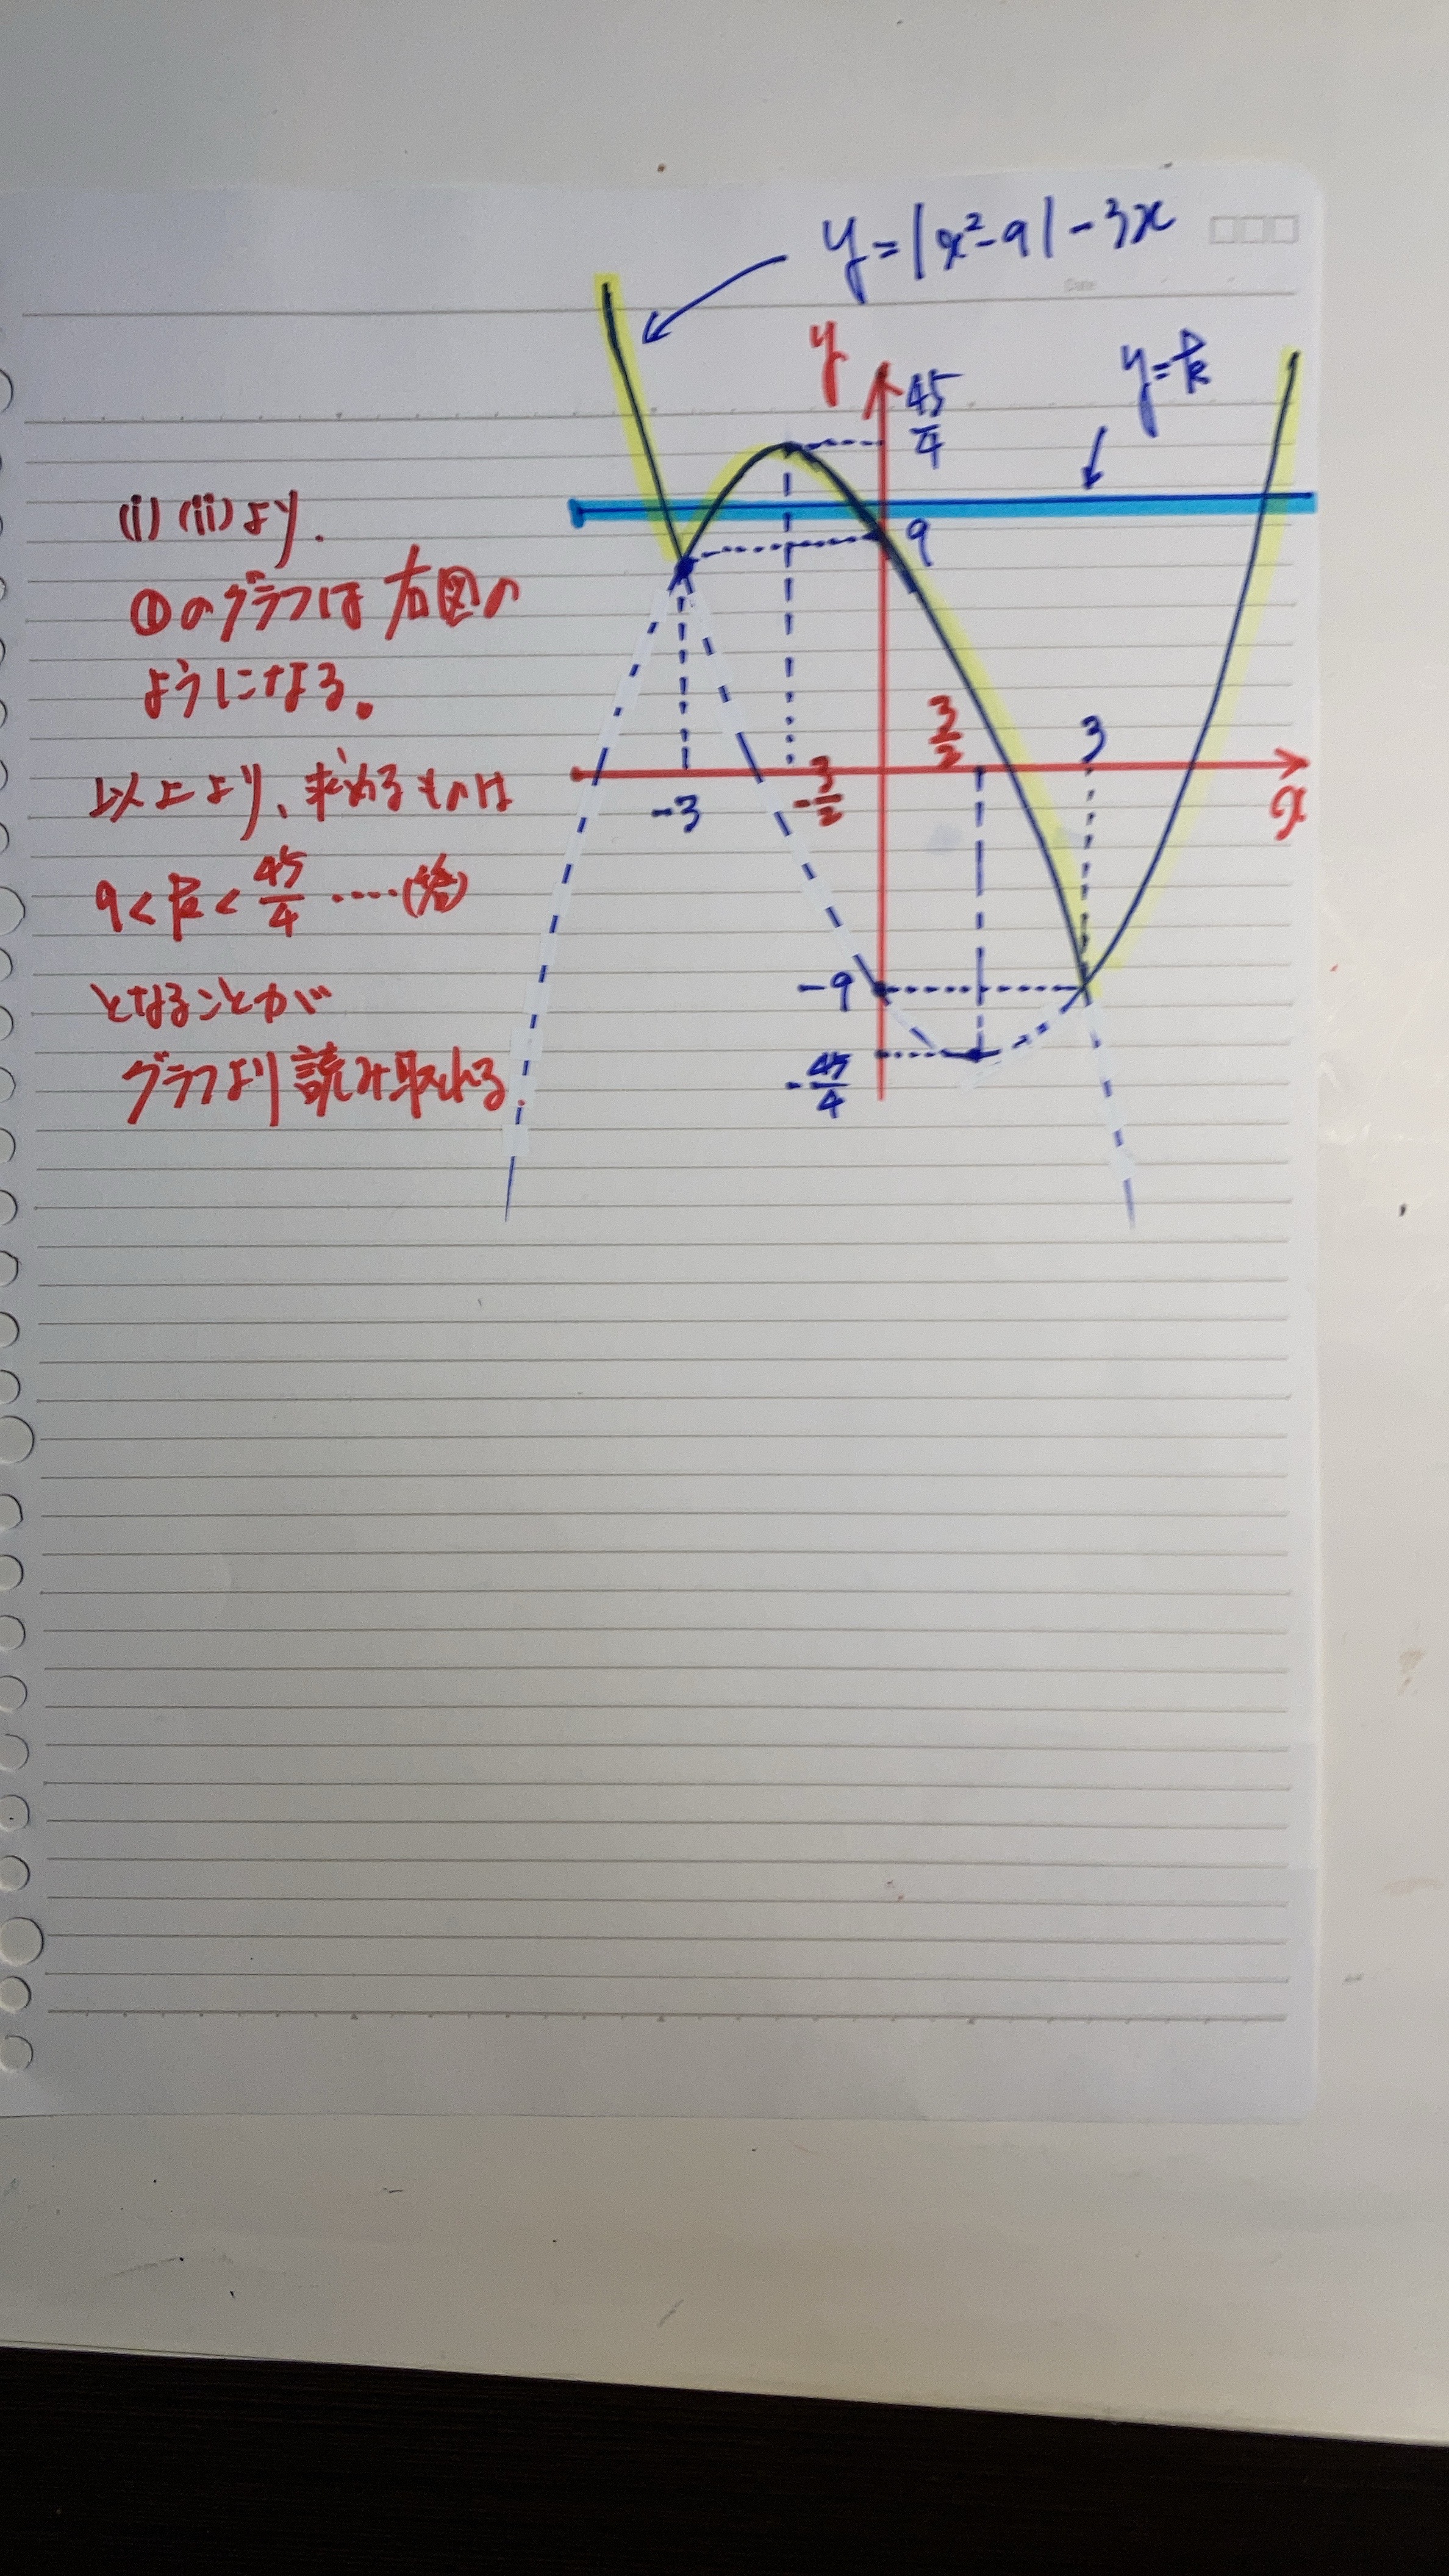 y=|x²-9|-3x
Date
y
45/4
y=k
(i)(ii)より.
9
①のグラフは右図の
ようになる。
3/2
3
以上より、求めるものは
-3
-3/2
x
9<k<45/4 ····(答)
-9
となることが
-45/4
グラフより読み取れる